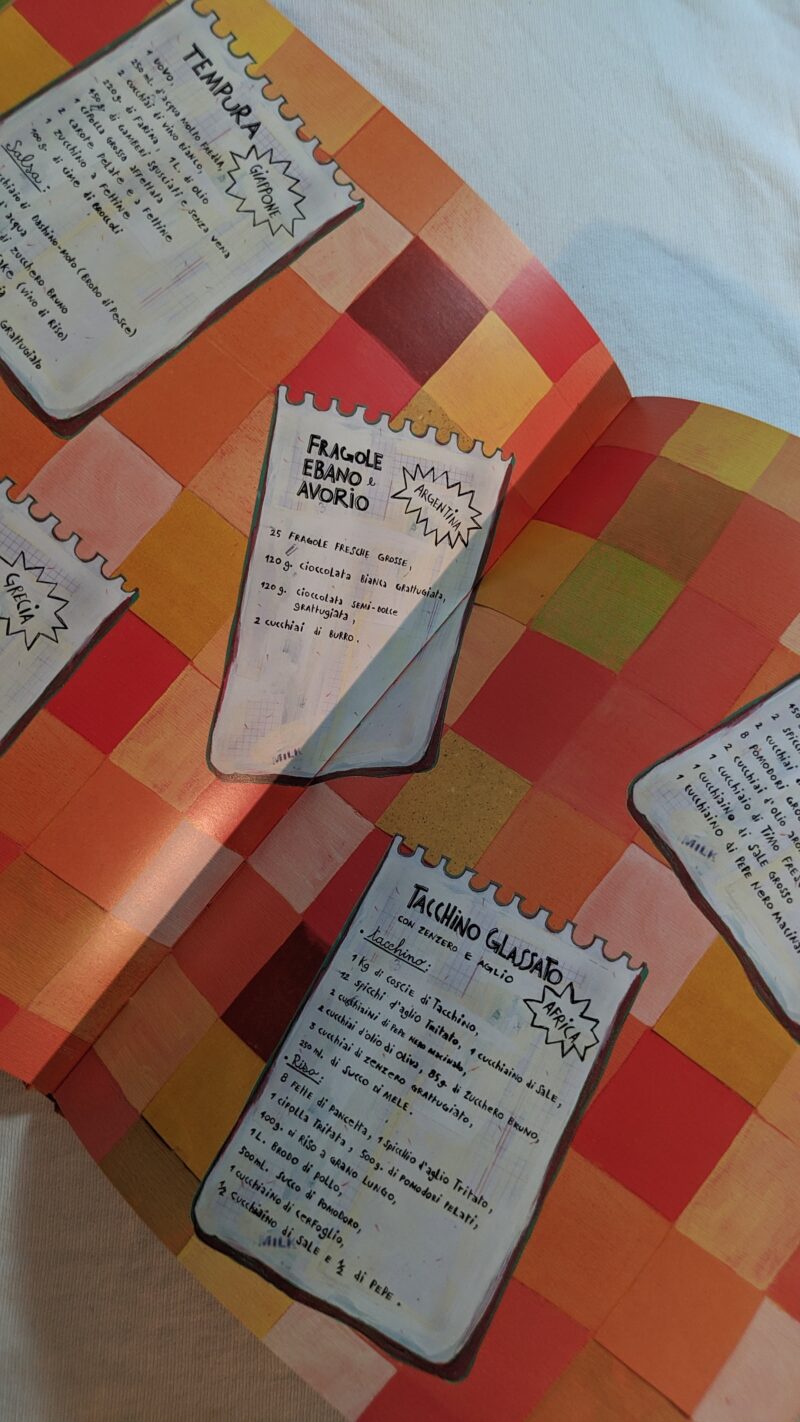 TEMPURA
GIAPPONE
1 UOVO,
250 mL. d'acqua MOLTO FREDDA,
2 CUCCHIAI di VINO BIANCO,
220 g. di FARINA, 1L. di OLIO
450 g. di GAMBERI SGUSCIATI E SENZA VENA
1 CIPOLLA GROSSA AFFETTATA
2 CAROTE PELATE E A FETTINE
1 ZUCCHINO A FETTINE
100 g. di CIME di BROCCOLI
Salsa:
DASHINO-MOTO (BRODO di PESCE)
d'acqua
di ZUCCHERO BRUNO
(VINO di RISO)
GRATTUGIATO
GRECIA
FRAGOLE
EBANO e
AVORIO
ARGENTINA
25 FRAGOLE FRESCHE GROSSE,
120 g. CIOCCOLATA BIANCA GRATTUGIATA,
120 g. CIOCCOLATA SEMI-DOLCE
GRATTUGIATA,
2 CUCCHIAI di BURRO.
MILK
450
2 SPICC
2 CUCCHIAI
8 POMODORI GRO
2 CUCCHIAI d'OLIO
1 CUCCHIAIO di TIMO FRES
1 CUCCHIAINO di SALE GROSSO
1 CUCCHIAINO di PEPE NERO MACINA
MILK
TACCHINO GLASSATO
CON ZENZERO E AGLIO
AFRICA
• tacchino:
1 Kg di COSCIE di TACCHINO,
12 SPICCHI d'AGLIO TRITATO, 1 CUCCHIAINO di SALE,
2 CUCCHIAINI di PEPE NERO MACINATO,
2 CUCCHIAI d'OLIO di OLIVA, 85 g. di ZUCCHERO BRUNO,
3 CUCCHIAI di ZENZERO GRATTUGIATO,
250 mL. di SUCCO di MELE.
• Riso:
8 FETTE di PANCETTA, 1 SPICCHIO d'AGLIO TRITATO,
1 CIPOLLA TRITATA, 500 g. di POMODORI PELATI,
400 g. di RISO A GRANO LUNGO,
1 L. BRODO di POLLO,
500 mL. SUCCO di POMODORO,
1 CUCCHIAINO di CERFOGLIO,
1/2 CUCCHIAINO di SALE E 1/2 di PEPE.
MILK